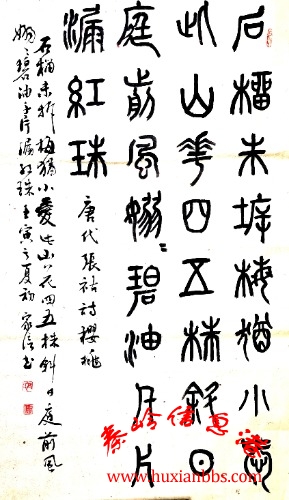 石橊未坼梅猶小愛
此山花四五株斜日
庭前風嫋〻碧油千片
漏紅珠
唐代張祜詩櫻桃
石榴未拆梅猶小愛此山花四五株斜日庭前風
嫋〻碧油千片漏紅珠壬寅之夏初家信书
www.huxianbbs.com